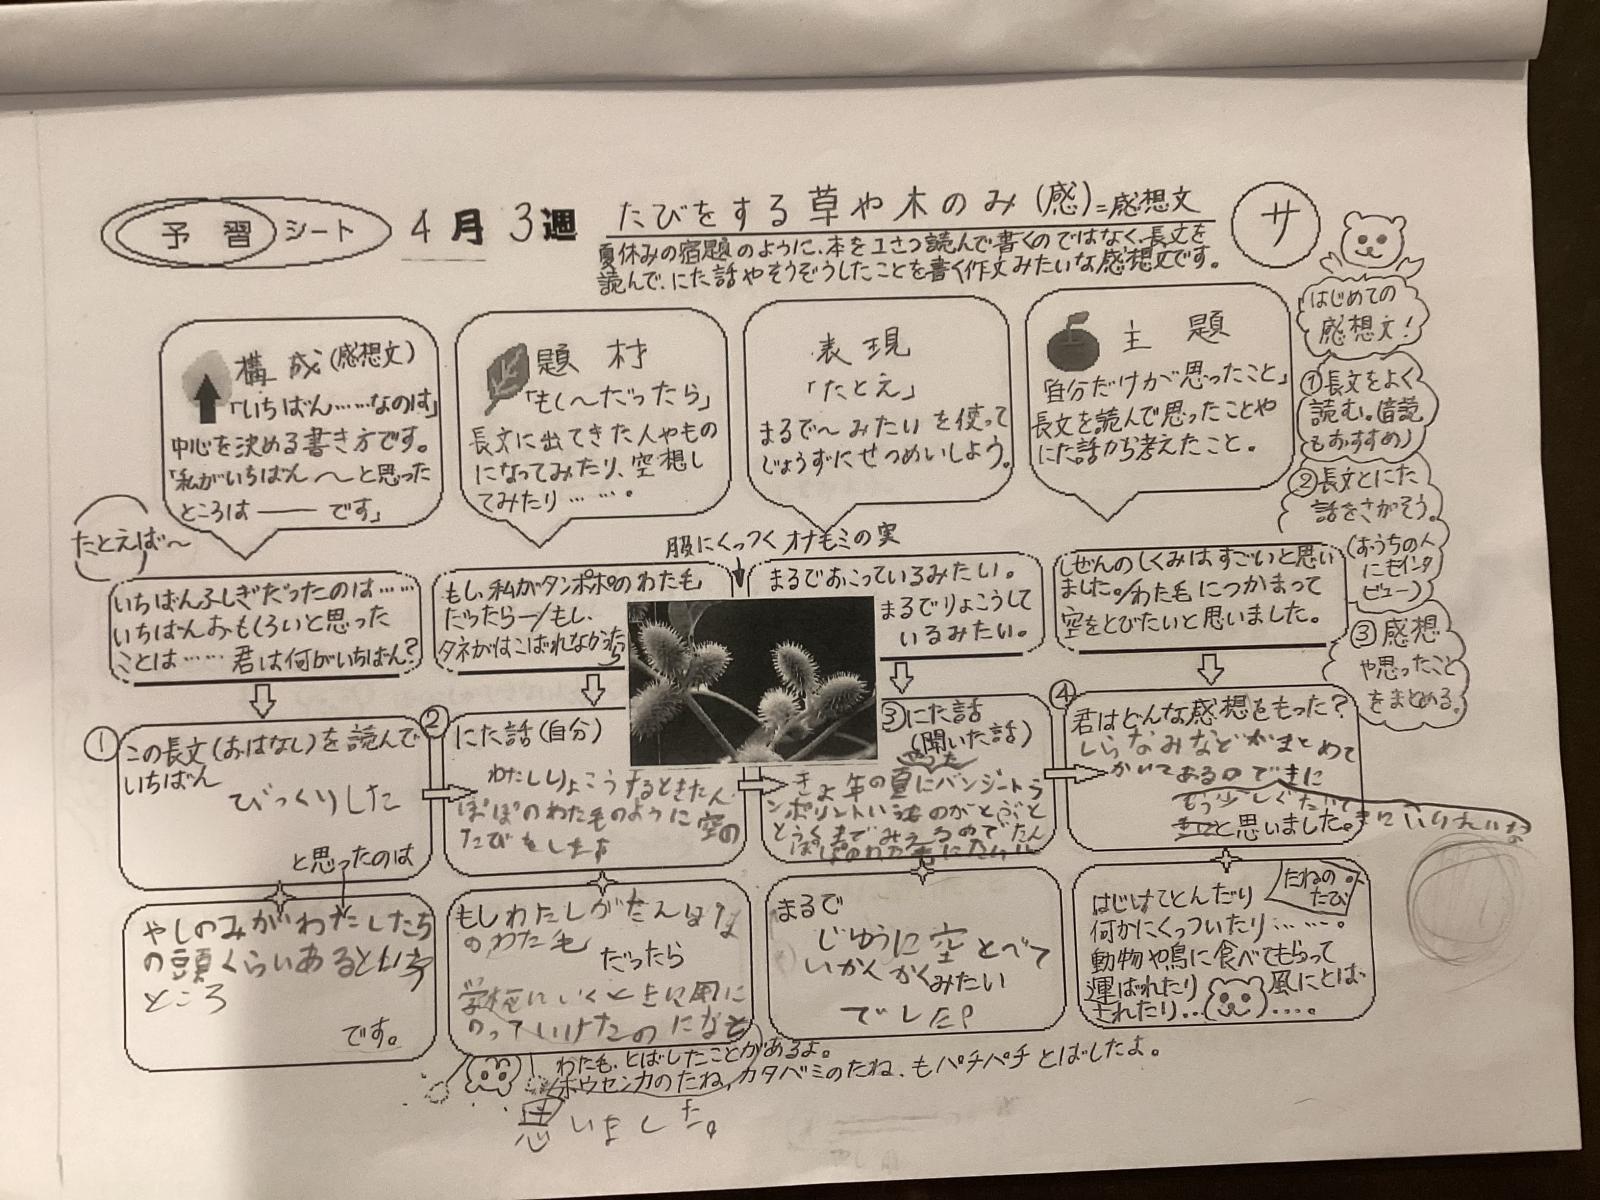 予習シート 4月3週 たびをする草や木のみ(感)=感想文 サ
夏休みの宿題のように、本を1さつ読んで書くのではなく、長文を
読んで、にた話やそうぞうしたことを書く作文みたいな感想文です。
構成(感想文)
「いちばん……なのは」
中心を決める書き方です。
「私がいちばん〜と思った
ところは――です」
題材
「もし〜だったら」
長文に出てきた人やもの
になってみたり、空想し
てみたり……。
表現
「たとえ」
まるで〜みたいを使って
じょうずにせつめいしよう。
主題
「自分だけが思ったこと」
長文を読んで思ったことや
にた話から考えたこと。
はじめての
感想文!
①長文をよく
読む。(音読
もおすすめ)
②長文とにた
話をさがそう。
(おうちの人
にもインタ
ビュー)
③感想
や思ったこと
をまとめる。
たとえば〜
いちばんふしぎだったのは……
いちばんおもしろいと思った
ことは……君は何がいちばん?
もし、私がタンポポのわた毛
だったら―/もし、
タネがはこばれなかったら
服にくっつくオナモミの実
まるでおこっているみたい。
まるでりょこうして
いるみたい。
しぜんのしくみはすごいと思い
ました。/わた毛につかまって
空をとびたいと思いました。
①
この長文(おはなし)を読んで
いちばん
びっくりした
と思ったのは
やしのみがわたしたち
の頭くらいあるという
ところ
です。
②
にた話(自分)
わたしりょこうするときたん
ぽぽのわた毛のように空の
たびをします
もしわたしがたんぽぽ
のわた毛
だったら
学校にいくとき
っていけたのになと
思いました。
③にた話
(聞いた話)
やった
きょ年の夏にバンジートラ
ンポリン
とおくまでみえるので
まるで
じゆうに空とべて
いかんがくみたい
でした。
④
君はどんな感想をもった?
まとめて
かいてあるので
もう少しぐたい
と思いました。
はじけてとんだり
何かにくっついたり……。
動物や鳥に食べてもらって
運ばれたり 風にとば
されたり……。
たねの
たび
わた毛、とばしたことがあるよ。
ホウセンカのたね、カタバミのたね、もパチパチとばしたよ。